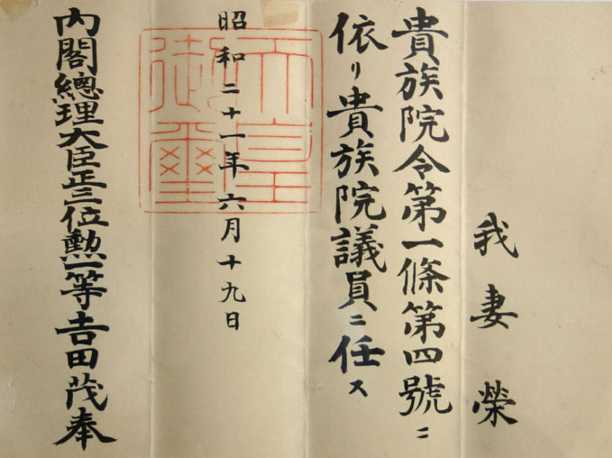 我妻榮
貴族院令第一條第四號ニ
依リ貴族院議員ニ任ス
天皇御璽
昭和二十一年六月十九日
內閣總理大臣正三位勳一等吉田茂奉